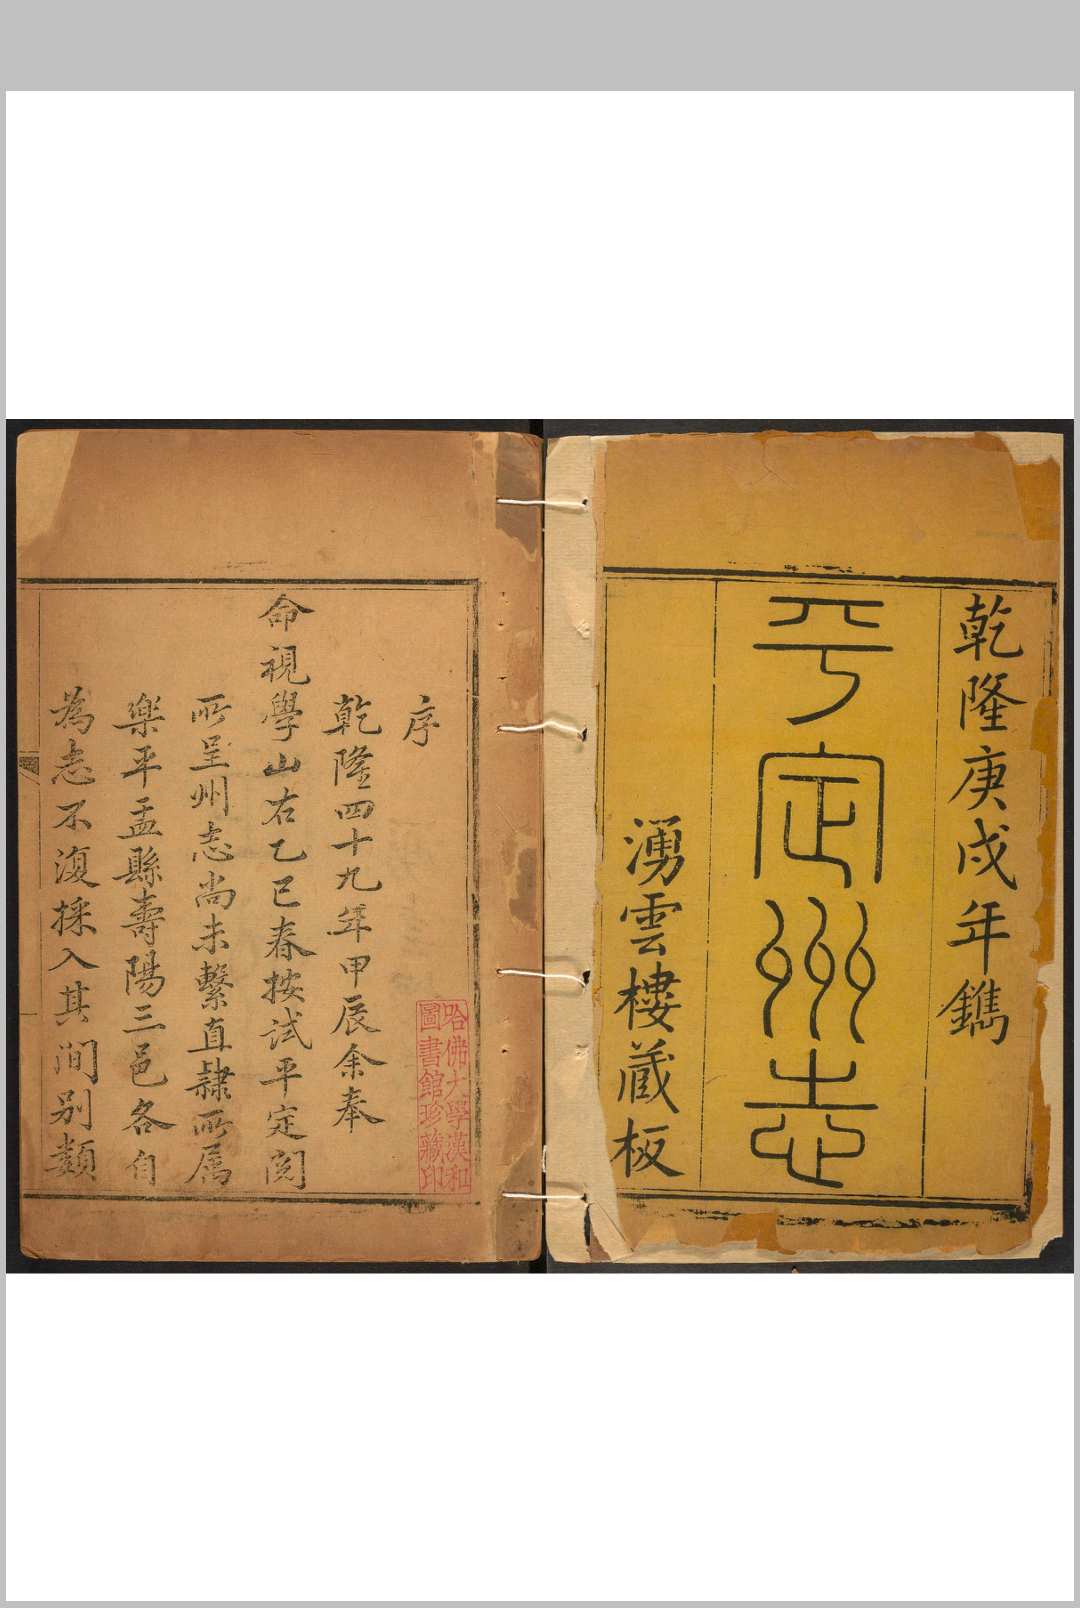 乾隆庚戍年鐫
平定州志
湧雲樓藏板
序
乾隆四十九年甲辰余奉
命視學山右乙巳春按試平定閱
所呈州志尚未繫直隷所属
樂平盂縣壽陽三邑各自
為志不復採入其間别類
哈佛大學漢和
圖書館珍藏印